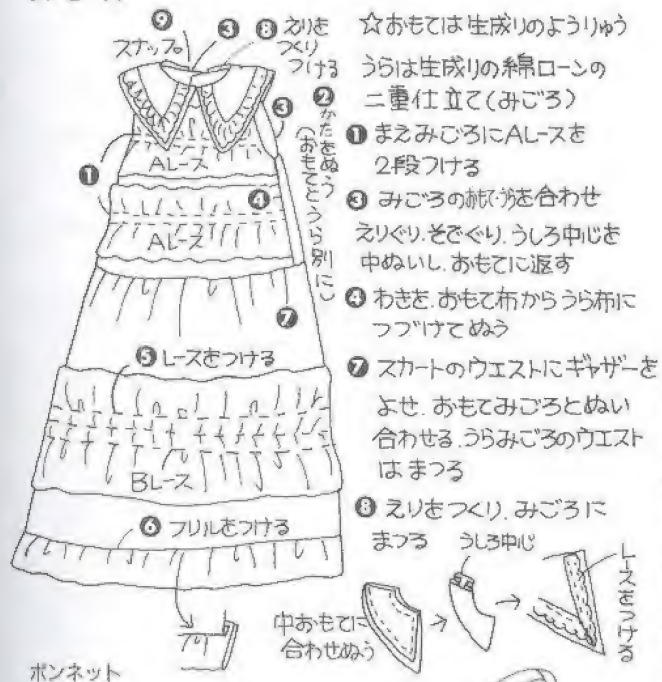 ❾
スナップ
❸
❽ えりを
つくり
つける
❸
❷ かたをぬう
(おもてとうら別に)
❶
Aレース
❹
Aレース
❼
❺ レースをつける
Bレース
❻ フリルをつける
☆おもては生成りのようりゅう
うらは生成りの綿ローンの
二重仕立て(みごろ)
❶ まえみごろにAレースを
2段つける
❸ みごろのおもて・うらを合わせ
えりぐり、そでぐり、うしろ中心を
中ぬいし、おもてに返す
❹ わきを、おもて布からうら布に
つづけてぬう
❼ スカートのウエストにギャザーを
よせ、おもてみごろとぬい
合わせる、うらみごろのウエスト
はまつる
❽ えりをつくり、みごろに
まつる
うしろ中心
レースをつける
中おもてに
合わせぬう
ボンネット